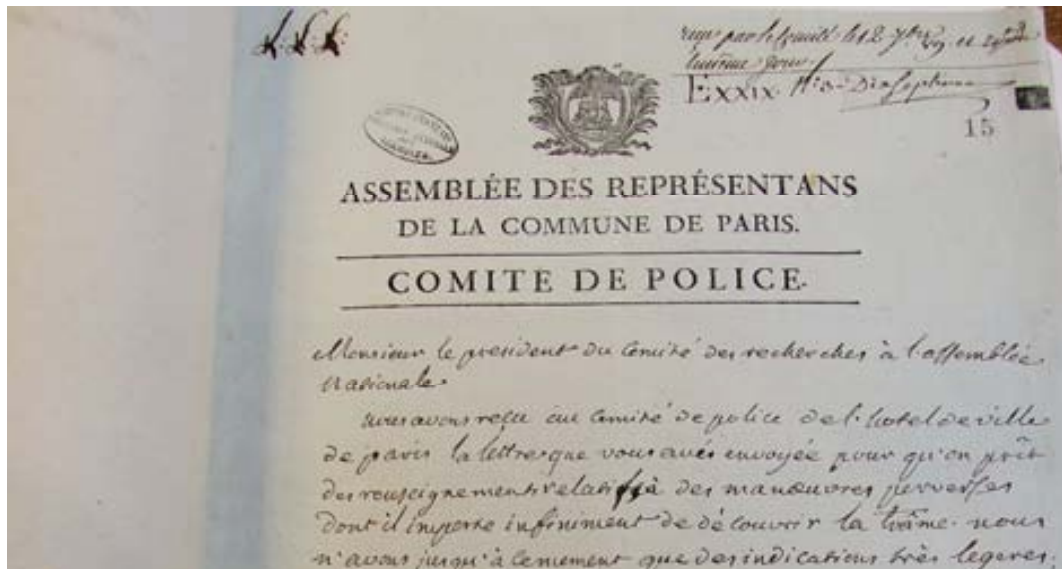 reçu par le Comité le 12 7bre
EXXIX
15
ASSEMBLÉE DES REPRÉSENTANS
DE LA COMMUNE DE PARIS.
COMITE DE POLICE.
Monsieur le president du Comité des recherches à l'assemblée
Nationale.
nous avons reçu au Comité de police de l'hotel de ville
de paris la lettre que vous avés envoyée pour qu'on prît
des renseignements relatifs à des manœuvres perverses
dont il importe infiniment de découvrir la trâme. nous
n'avons jusqu'à ce moment que des indications très legeres.